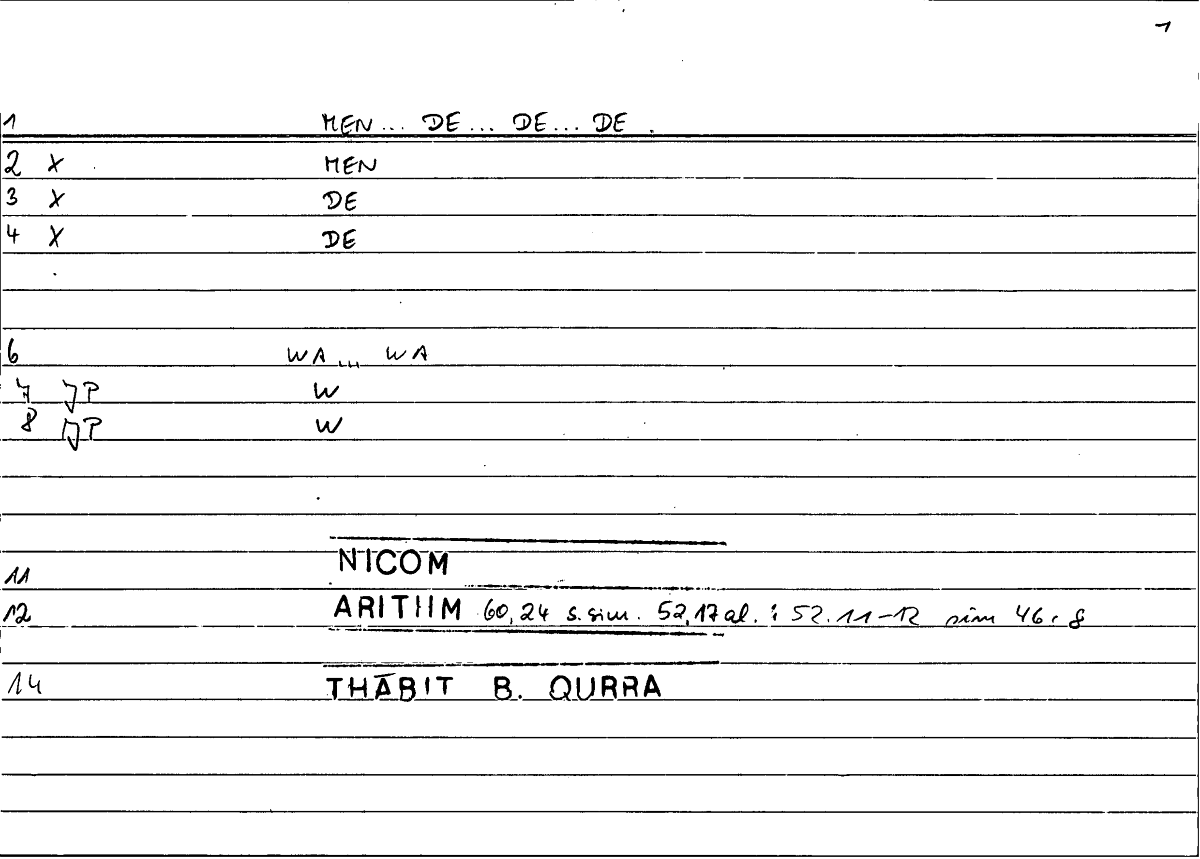 1
1 MEN... DE... DE... DE.
2 X MEN
3 X DE
4 X DE
6 WA... WA
7 JP W
8 JP W
11 NICOM
12 ARITIIM 60,24 s. sim. 52,17 al. : 52.11-12 sim 46,8
14 THĀBIT B. QURRA